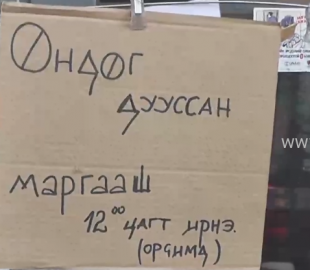 Өндөг
дууссан
маргааш
12⁰⁰ цагт ирнэ.
(орчимд)
ww